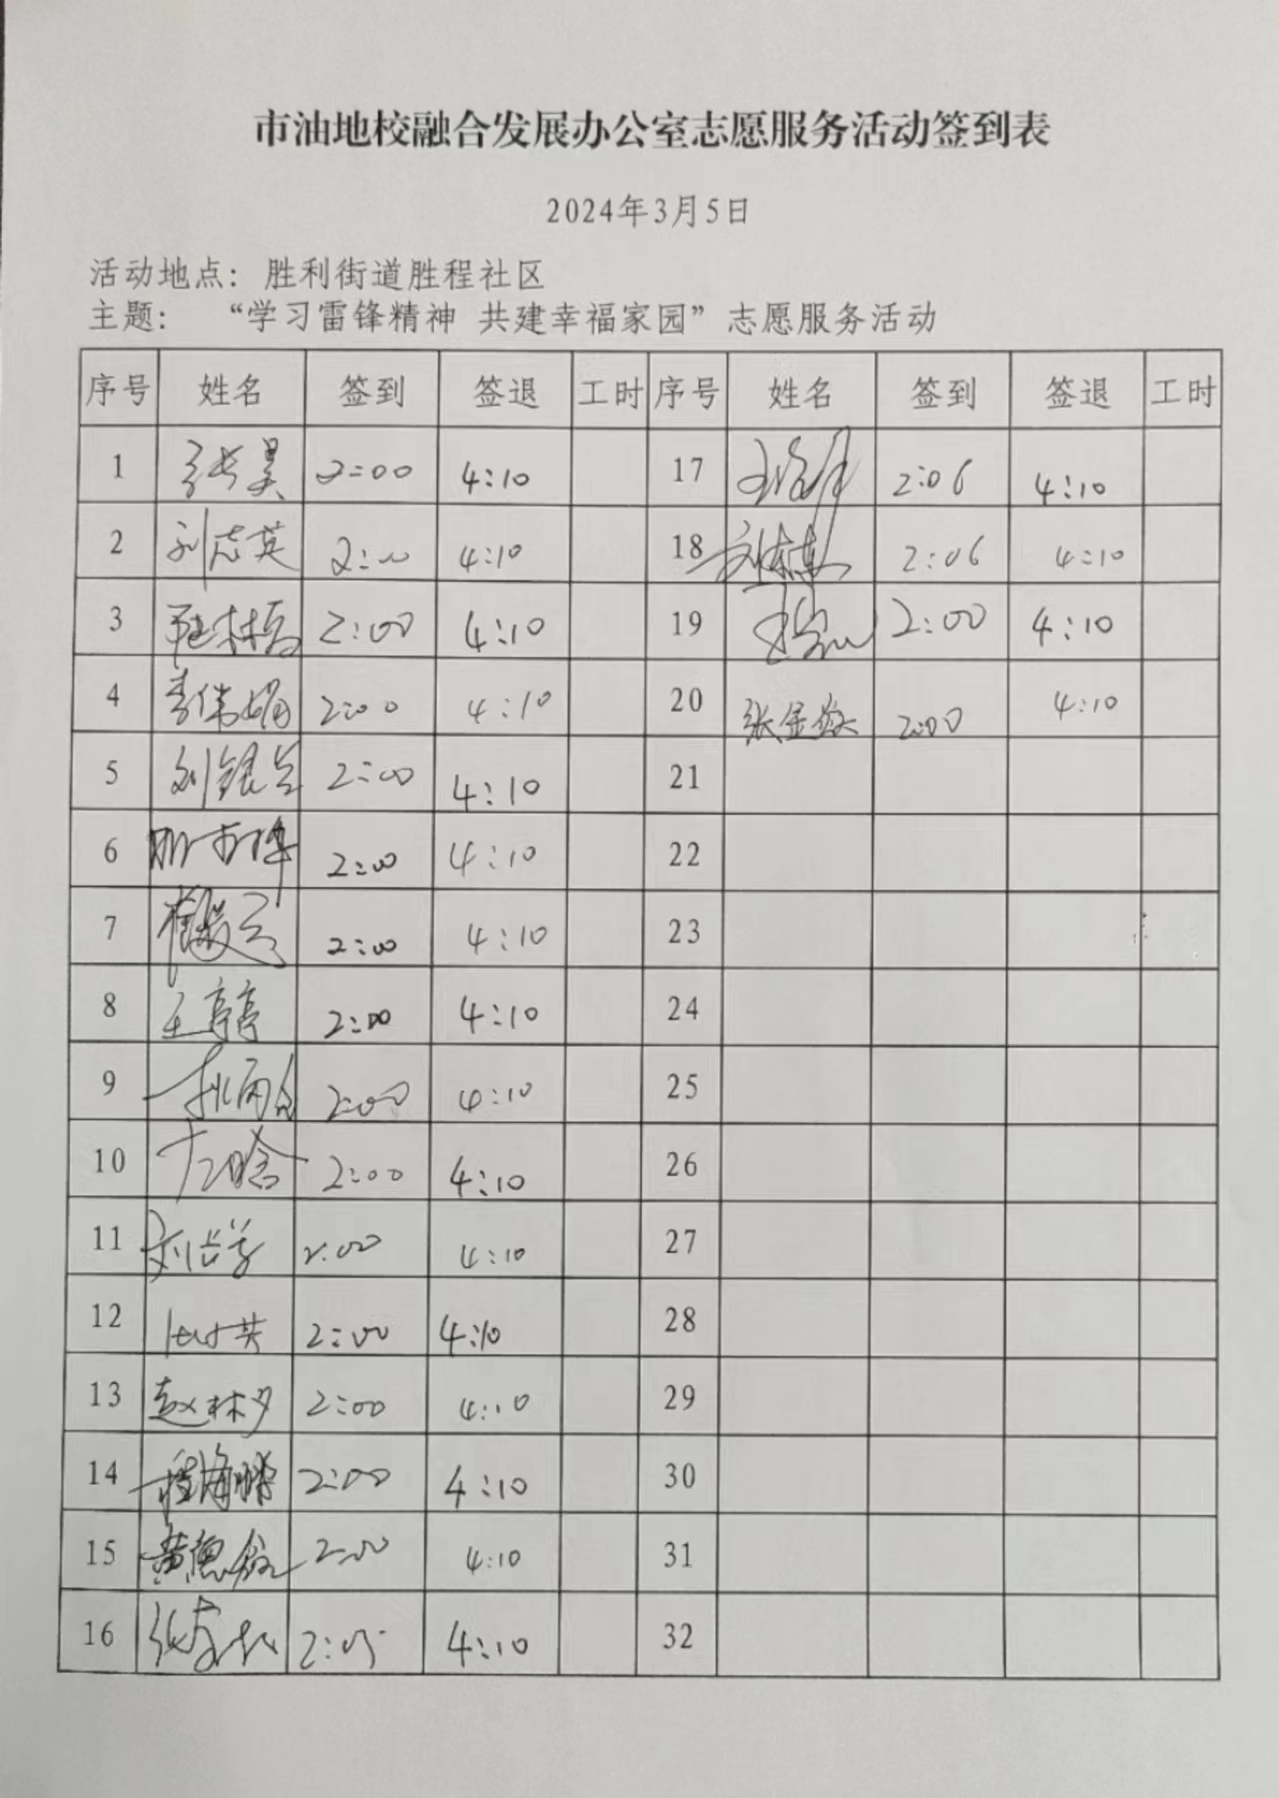 市油地校融合发展办公室志愿服务活动签到表
2024年3月5日
活动地点：胜利街道胜程社区
主题： “学习雷锋精神 共建幸福家园”志愿服务活动
序号 姓名 签到 签退 工时 序号 姓名 签到 签退 工时
1 张昊 2:00 4:10 17 2:06 4:10
2 刘志英 2:00 4:10 18 2:06 4:10
3 2:00 4:10 19 2:00 4:10
4 李伟娟 2:00 4:10 20 张金 2:00 4:10
5 刘银 2:00 4:10 21
6 2:00 4:10 22
7 2:00 4:10 23
8 王亭亭 2:00 4:10 24
9 2:00 4:10 25
10 2:00 4:10 26
11 刘 2:00 4:10 27
12 2:00 4:10 28
13 赵林夕 2:00 4:10 29
14 程海鹏 2:00 4:10 30
15 黄德 2:00 4:10 31
16 张 2:05 4:10 32